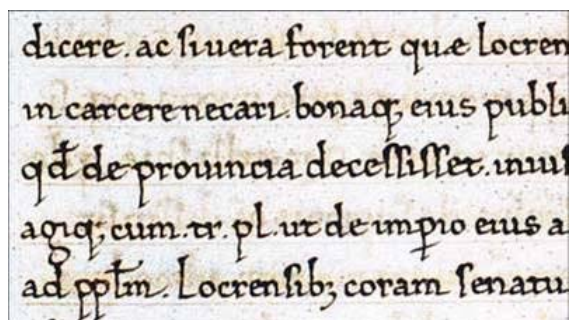 dicere. ac si uera forent quæ locren
in carcere necari. bonaq; eius publi
qđ de prouincia decessisset. inius
agiq; cum. tr. pl. ut de imꝑio eius a
ad ppl̄m. Locrensib; coram senatu